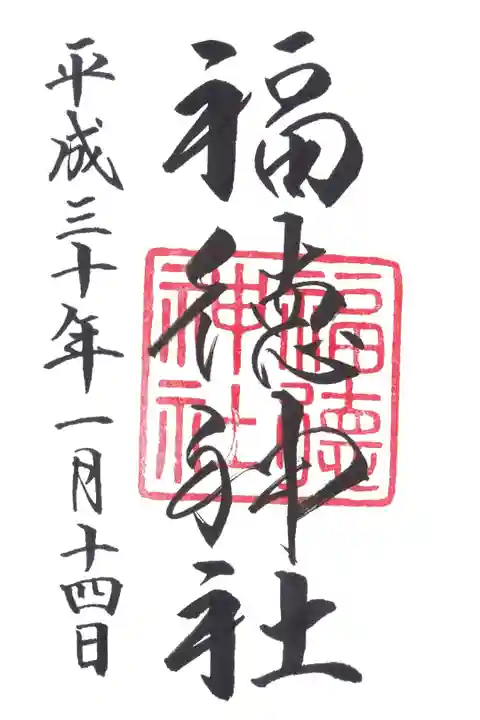 福徳神社
福徳神社
平成三十年一月十四日